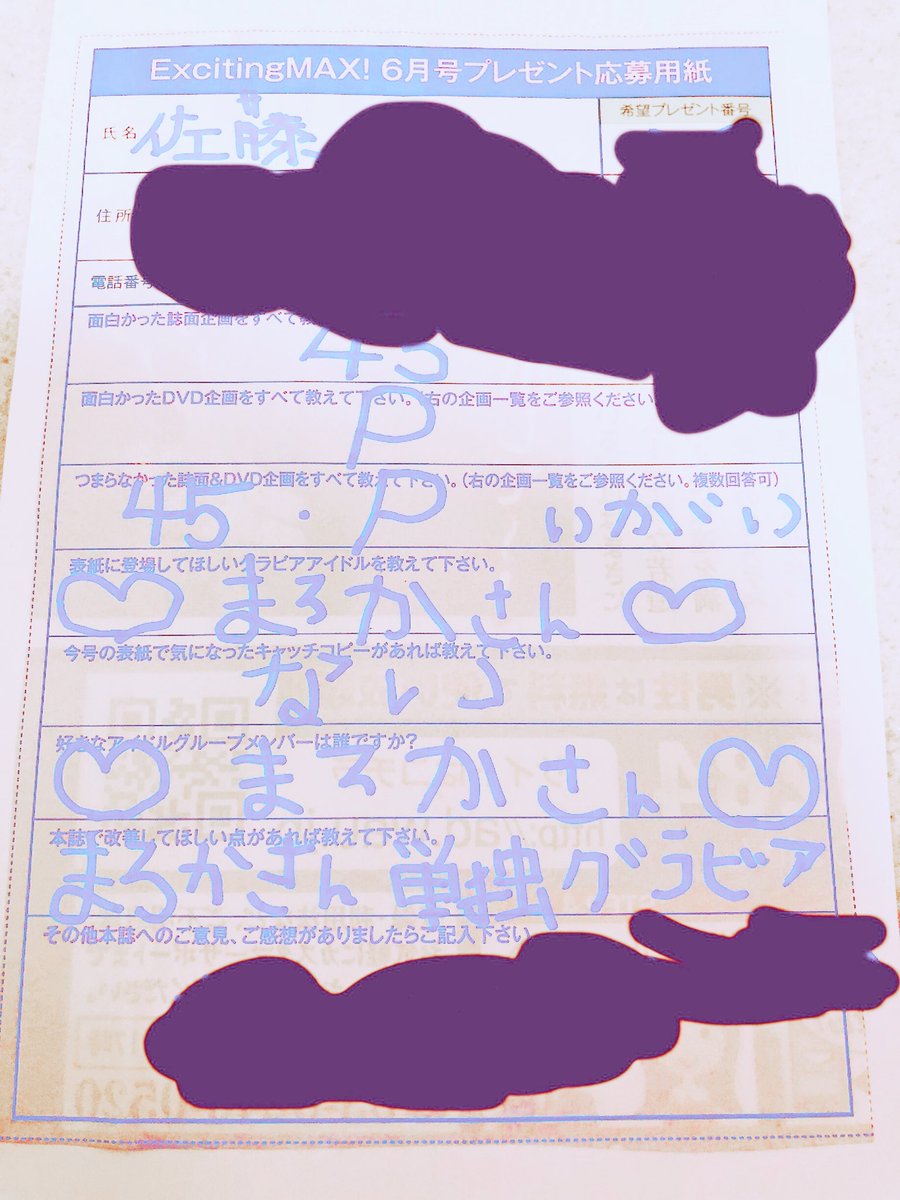 ExcitingMAX! 6月号プレゼント応募用紙
氏名 佐藤
希望プレゼント番号
住所
電話番号
面白かった誌面企画をすべて教
45
面白かったDVD企画をすべて教えて下さい。(右の企画一覧をご参照ください
P
つまらなかった誌面&DVD企画をすべて教えて下さい。(右の企画一覧をご参照ください。複数回答可)
45・P いがい
表紙に登場してほしいグラビアアイドルを教えて下さい。
♡ まろかさん ♡
今号の表紙で気になったキャッチコピーがあれば教えて下さい。
ない
好きなアイドルグループメンバーは誰ですか?
♡ まろかさん ♡
本誌で改善してほしい点があれば教えて下さい。
まろかさん単独グラビア
その他本誌へのご意見、ご感想がありましたらご記入下さい